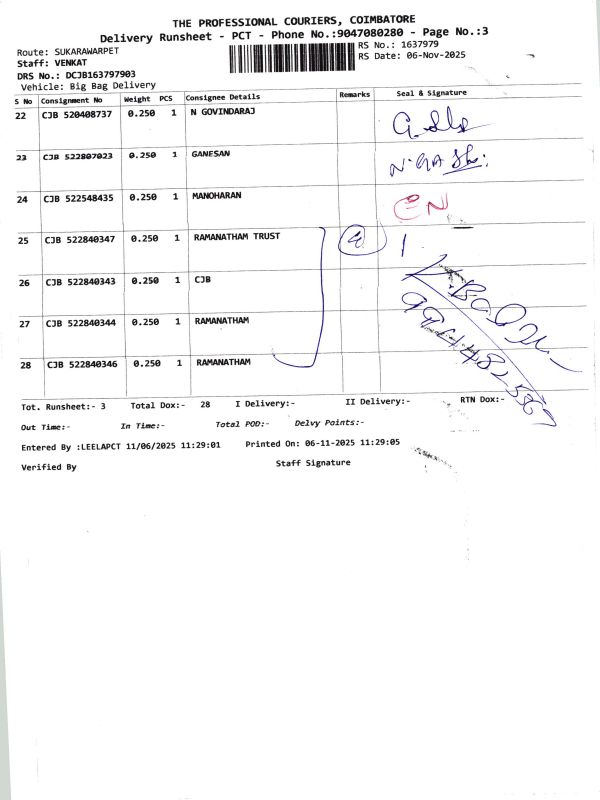 THE PROFESSIONAL COURIERS, COIMBATORE
Delivery Runsheet - PCT - Phone No.:9047080280 - Page No.:3
Route: SUKARAWARPET
RS No.: 1637979
Staff: VENKAT
RS Date: 06-Nov-2025
DRS No.: DCJB163797903
Vehicle: Big Bag Delivery
S No Consignment No Weight PCS Consignee Details Remarks Seal & Signature
22 CJB 520408737 0.250 1 N GOVINDARAJ
23 CJB 522807023 0.250 1 GANESAN
24 CJB 522548435 0.250 1 MANOHARAN
25 CJB 522840347 0.250 1 RAMANATHAM TRUST
26 CJB 522840343 0.250 1 CJB
27 CJB 522840344 0.250 1 RAMANATHAM
28 CJB 522840346 0.250 1 RAMANATHAM
Tot. Runsheet:- 3 Total Dox:- 28 I Delivery:- II Delivery:- RTN Dox:-
Out Time:- In Time:- Total POD:- Delvy Points:-
Entered By :LEELAPCT 11/06/2025 11:29:01 Printed On: 06-11-2025 11:29:05
Verified By Staff Signature